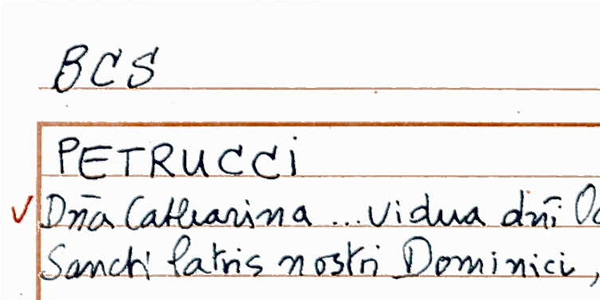 BCS
PETRUCCi
Dn̄a Catharina ... vidua dn̄i
Sancti Patris nostri Dominici,